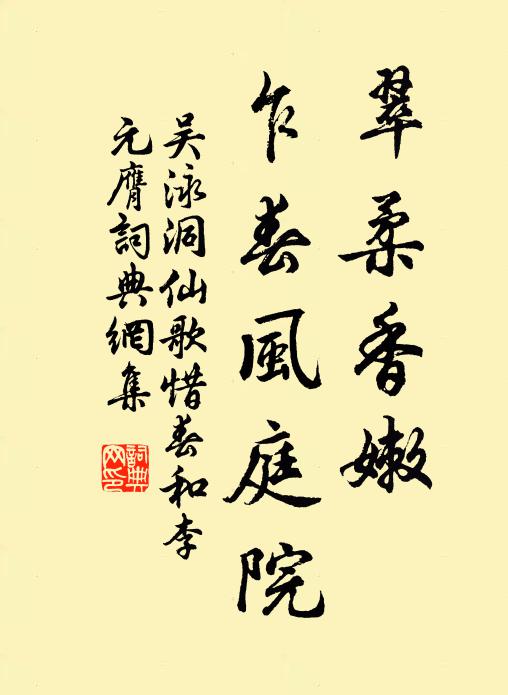 翠柔香嫩
乍春風庭院
吴泳洞仙歌惜春和李
元膺詞典網集
詞典
网印